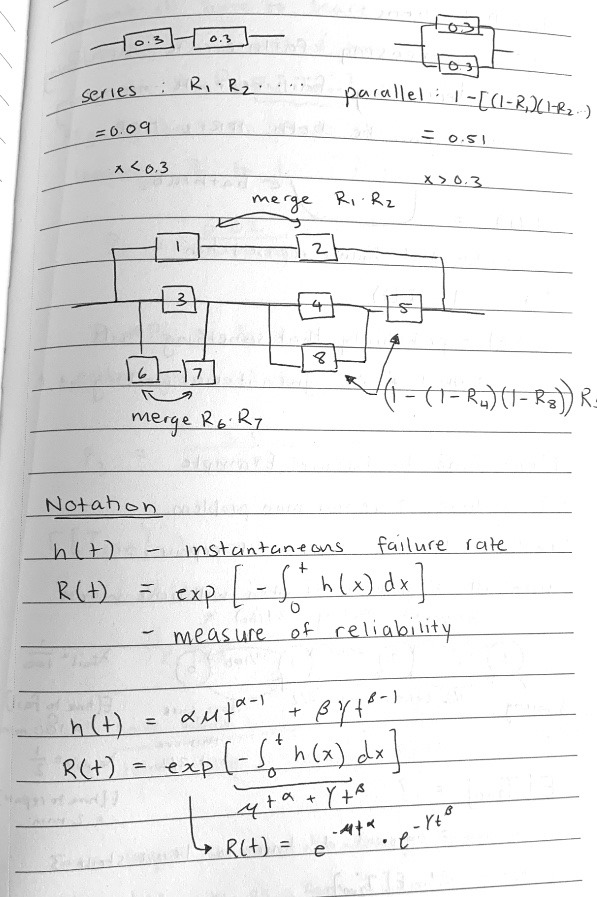 0.3 0.3 0.3
0.3
series : R₁ · R₂ · · · · · parallel : 1 - [(1-R₁)(1-R₂...)
= 0.09 = 0.51
x < 0.3 x > 0.3
merge R₁ · R₂
1 2
3 4 5
8
6 7
(1 - (1 - R₄)(1 - R₈)) R₅
merge R₆ · R₇
Notation
h(t) - instantaneous failure rate
R(t) = exp [ - ∫₀ᵗ h(x) dx ]
- measure of reliability
h(t) = αμt^(α-1) + βγt^(β-1)
R(t) = exp [ - ∫₀ᵗ h(x) dx ]
μt^α + γt^β
↳ R(t) = e^(-μt^α) · e^(-γt^β)